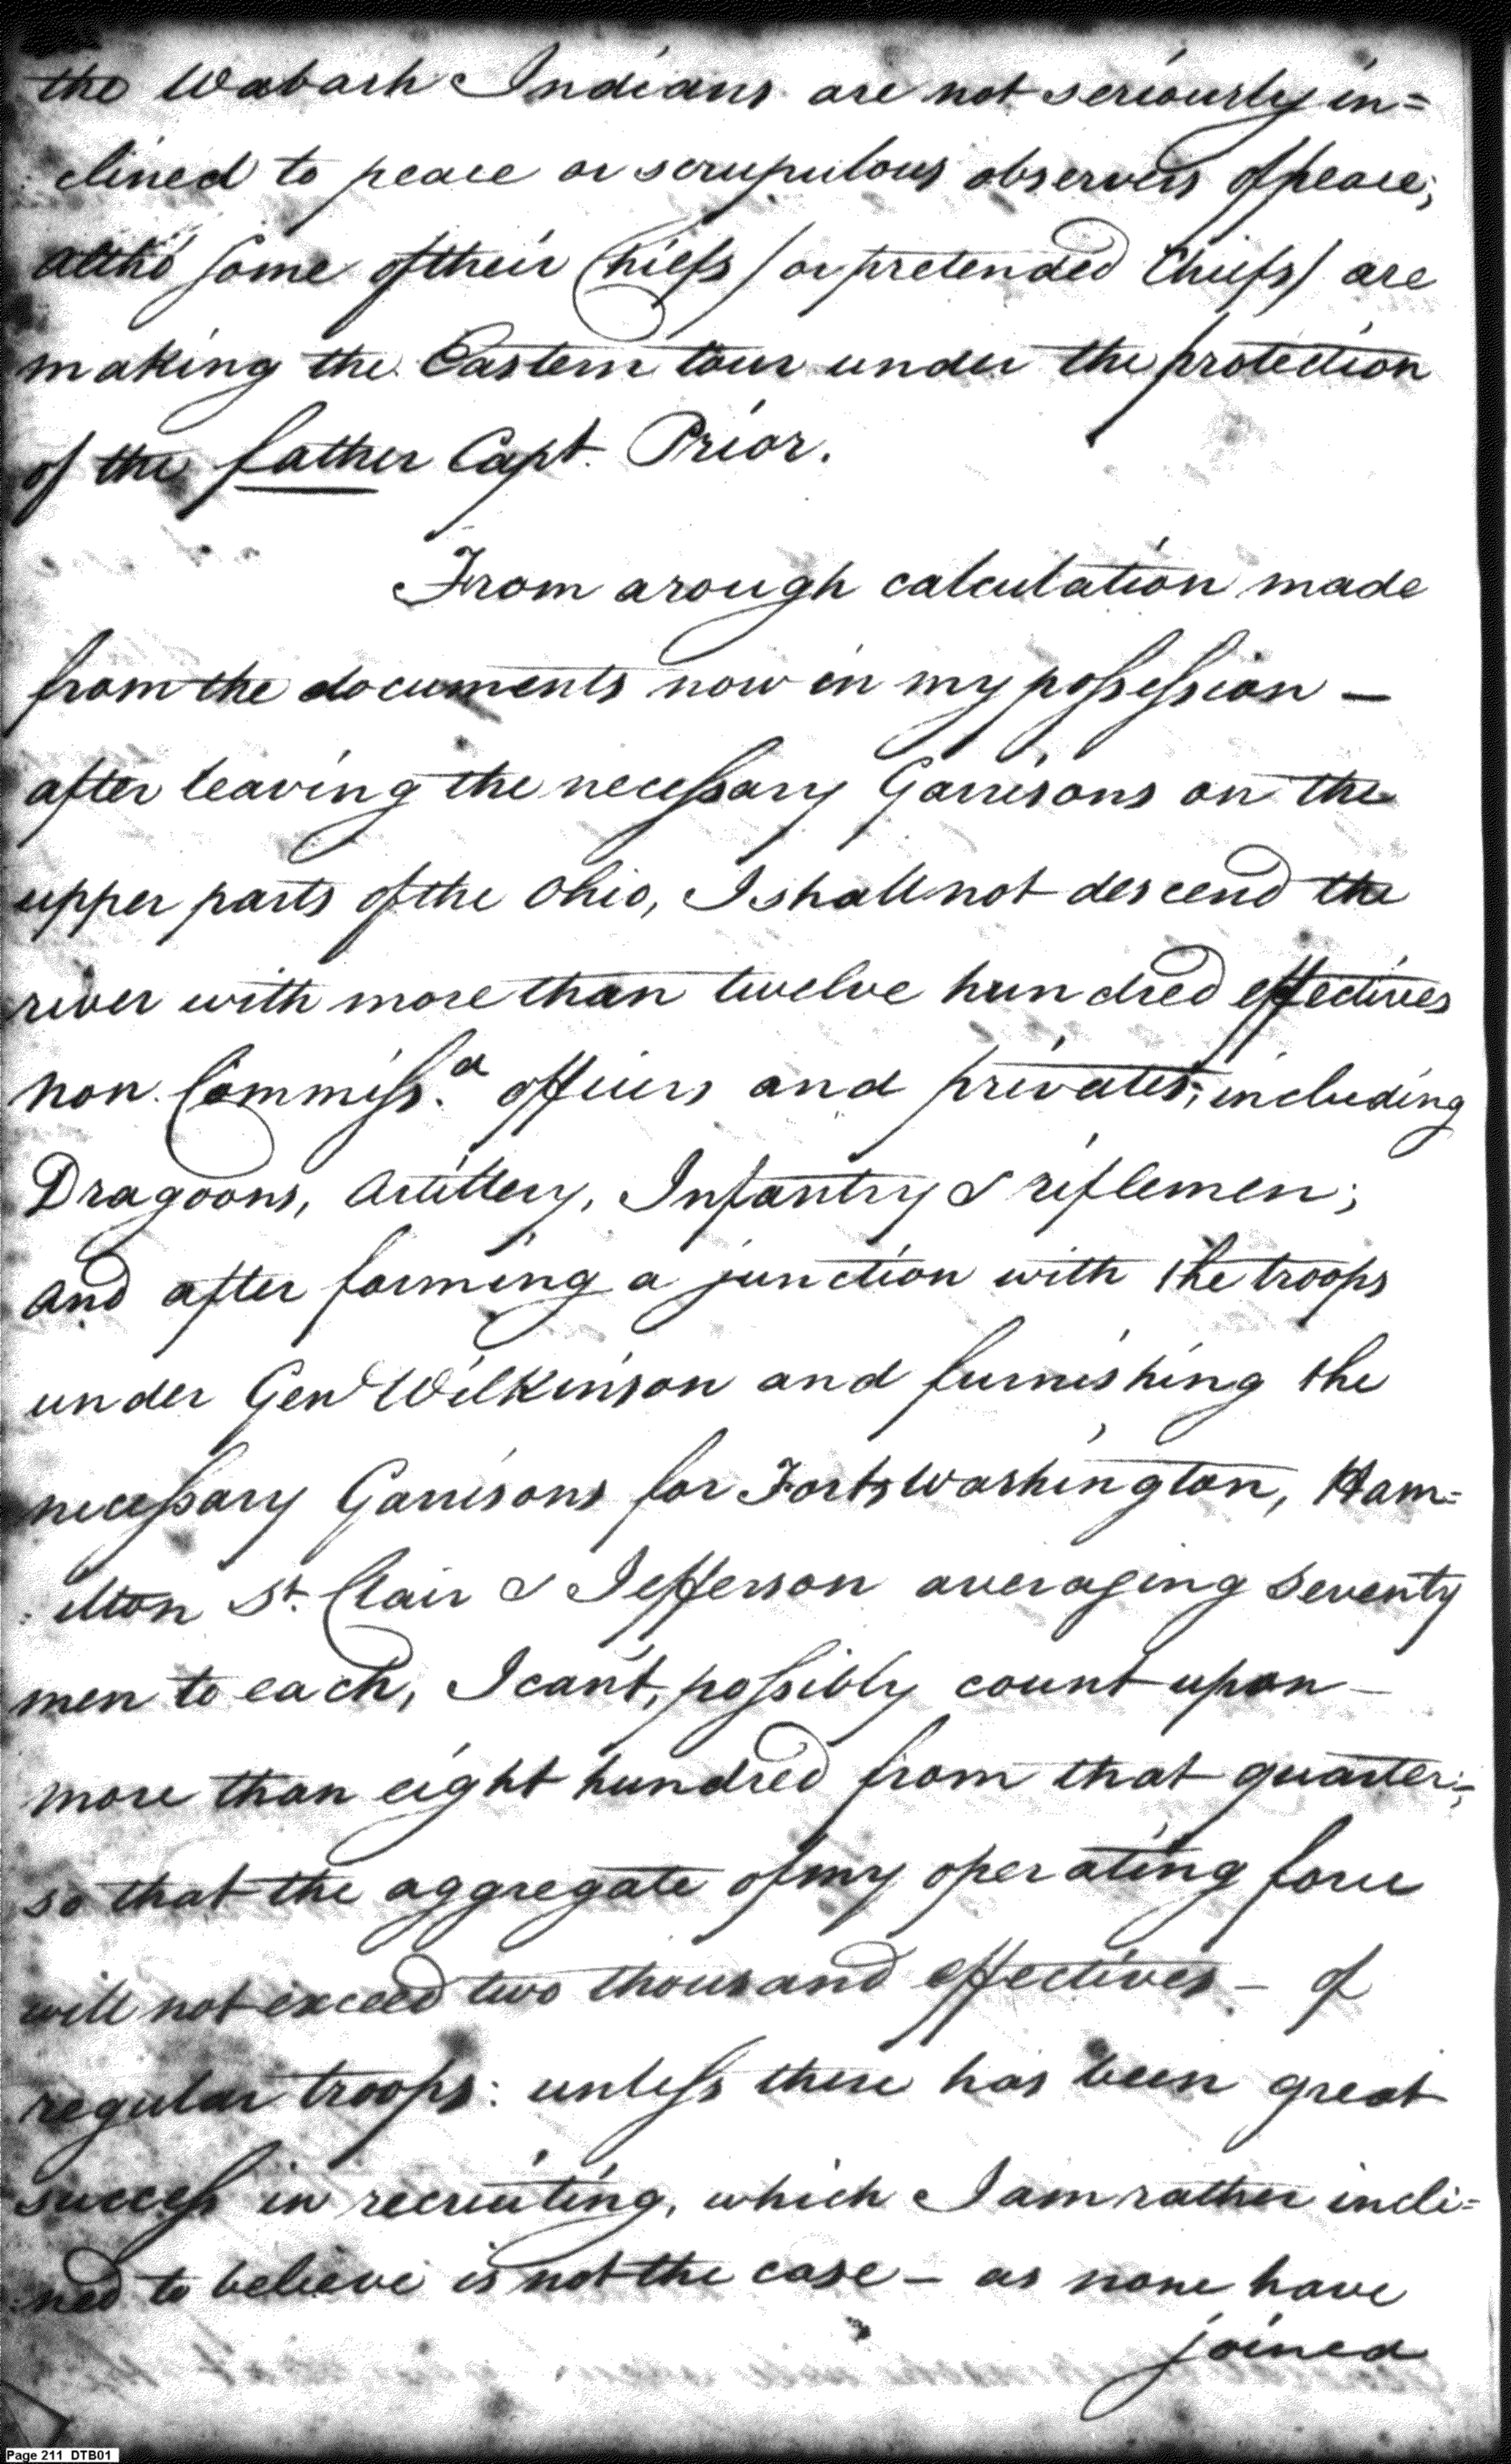 the Wabash Indians are not seriously in=
:clined to peace or scrupulous observers of peace;
altho' some of their Chiefs / or pretended Chiefs / are
making the Eastern tour under the protection
of the father Capt. Prior.
From a rough calculation made
from the documents now in my possession —
after leaving the necessary Garrisons on the
upper parts of the Ohio, I shall not descend the
river with more than twelve hundred effectives
non Commiss.d officers and privates; including
Dragoons, Artillery, Infantry & riflemen;
and after forming a junction with the troops
under Genl Wilkinson and furnishing the
necessary Garrisons for Forts Washington, Ham=
:ilton St. Clair & Jefferson averaging seventy
men to each, I can't, possibly count upon —
more than eight hundred from that quarter;
so that the aggregate of my operating force
will not exceed two thousand effectives — of
regular troops: unless there has been great
success in recruiting, which I am rather incli=
:ned to believe is not the case — as none have
joined
Page 211 DTB01